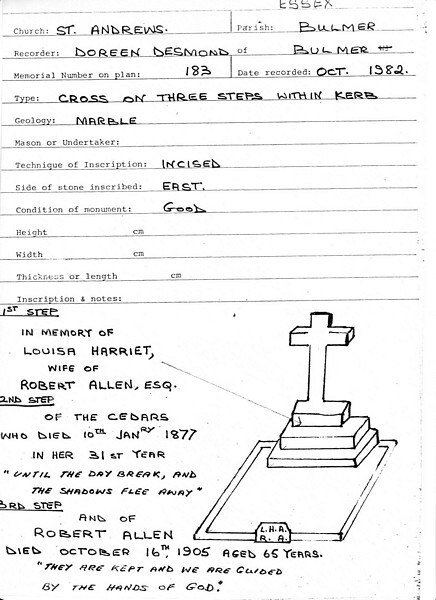 ESSEX
Church: ST. ANDREWS. Parish: BULMER
Recorder: DOREEN DESMOND of BULMER
Memorial Number on plan: 183 Date recorded: OCT. 1982.
Type: CROSS ON THREE STEPS WITHIN KERB
Geology: MARBLE
Mason or Undertaker:
Technique of Inscription: INCISED
Side of stone inscribed: EAST.
Condition of monument: GOOD
Height cm
Width cm
Thickness or length cm
Inscription & notes:
1ST STEP
IN MEMORY OF
LOUISA HARRIET,
WIFE OF
ROBERT ALLEN, ESQ.
2ND STEP
OF THE CEDARS
WHO DIED 10TH JANRY 1877
IN HER 31ST YEAR
"UNTIL THE DAY BREAK, AND
THE SHADOWS FLEE AWAY"
3RD STEP
AND OF
ROBERT ALLEN
DIED OCTOBER 16TH 1905 AGED 65 YEARS.
"THEY ARE KEPT AND WE ARE GUIDED
BY THE HANDS OF GOD."
L.H.A.
R.A.